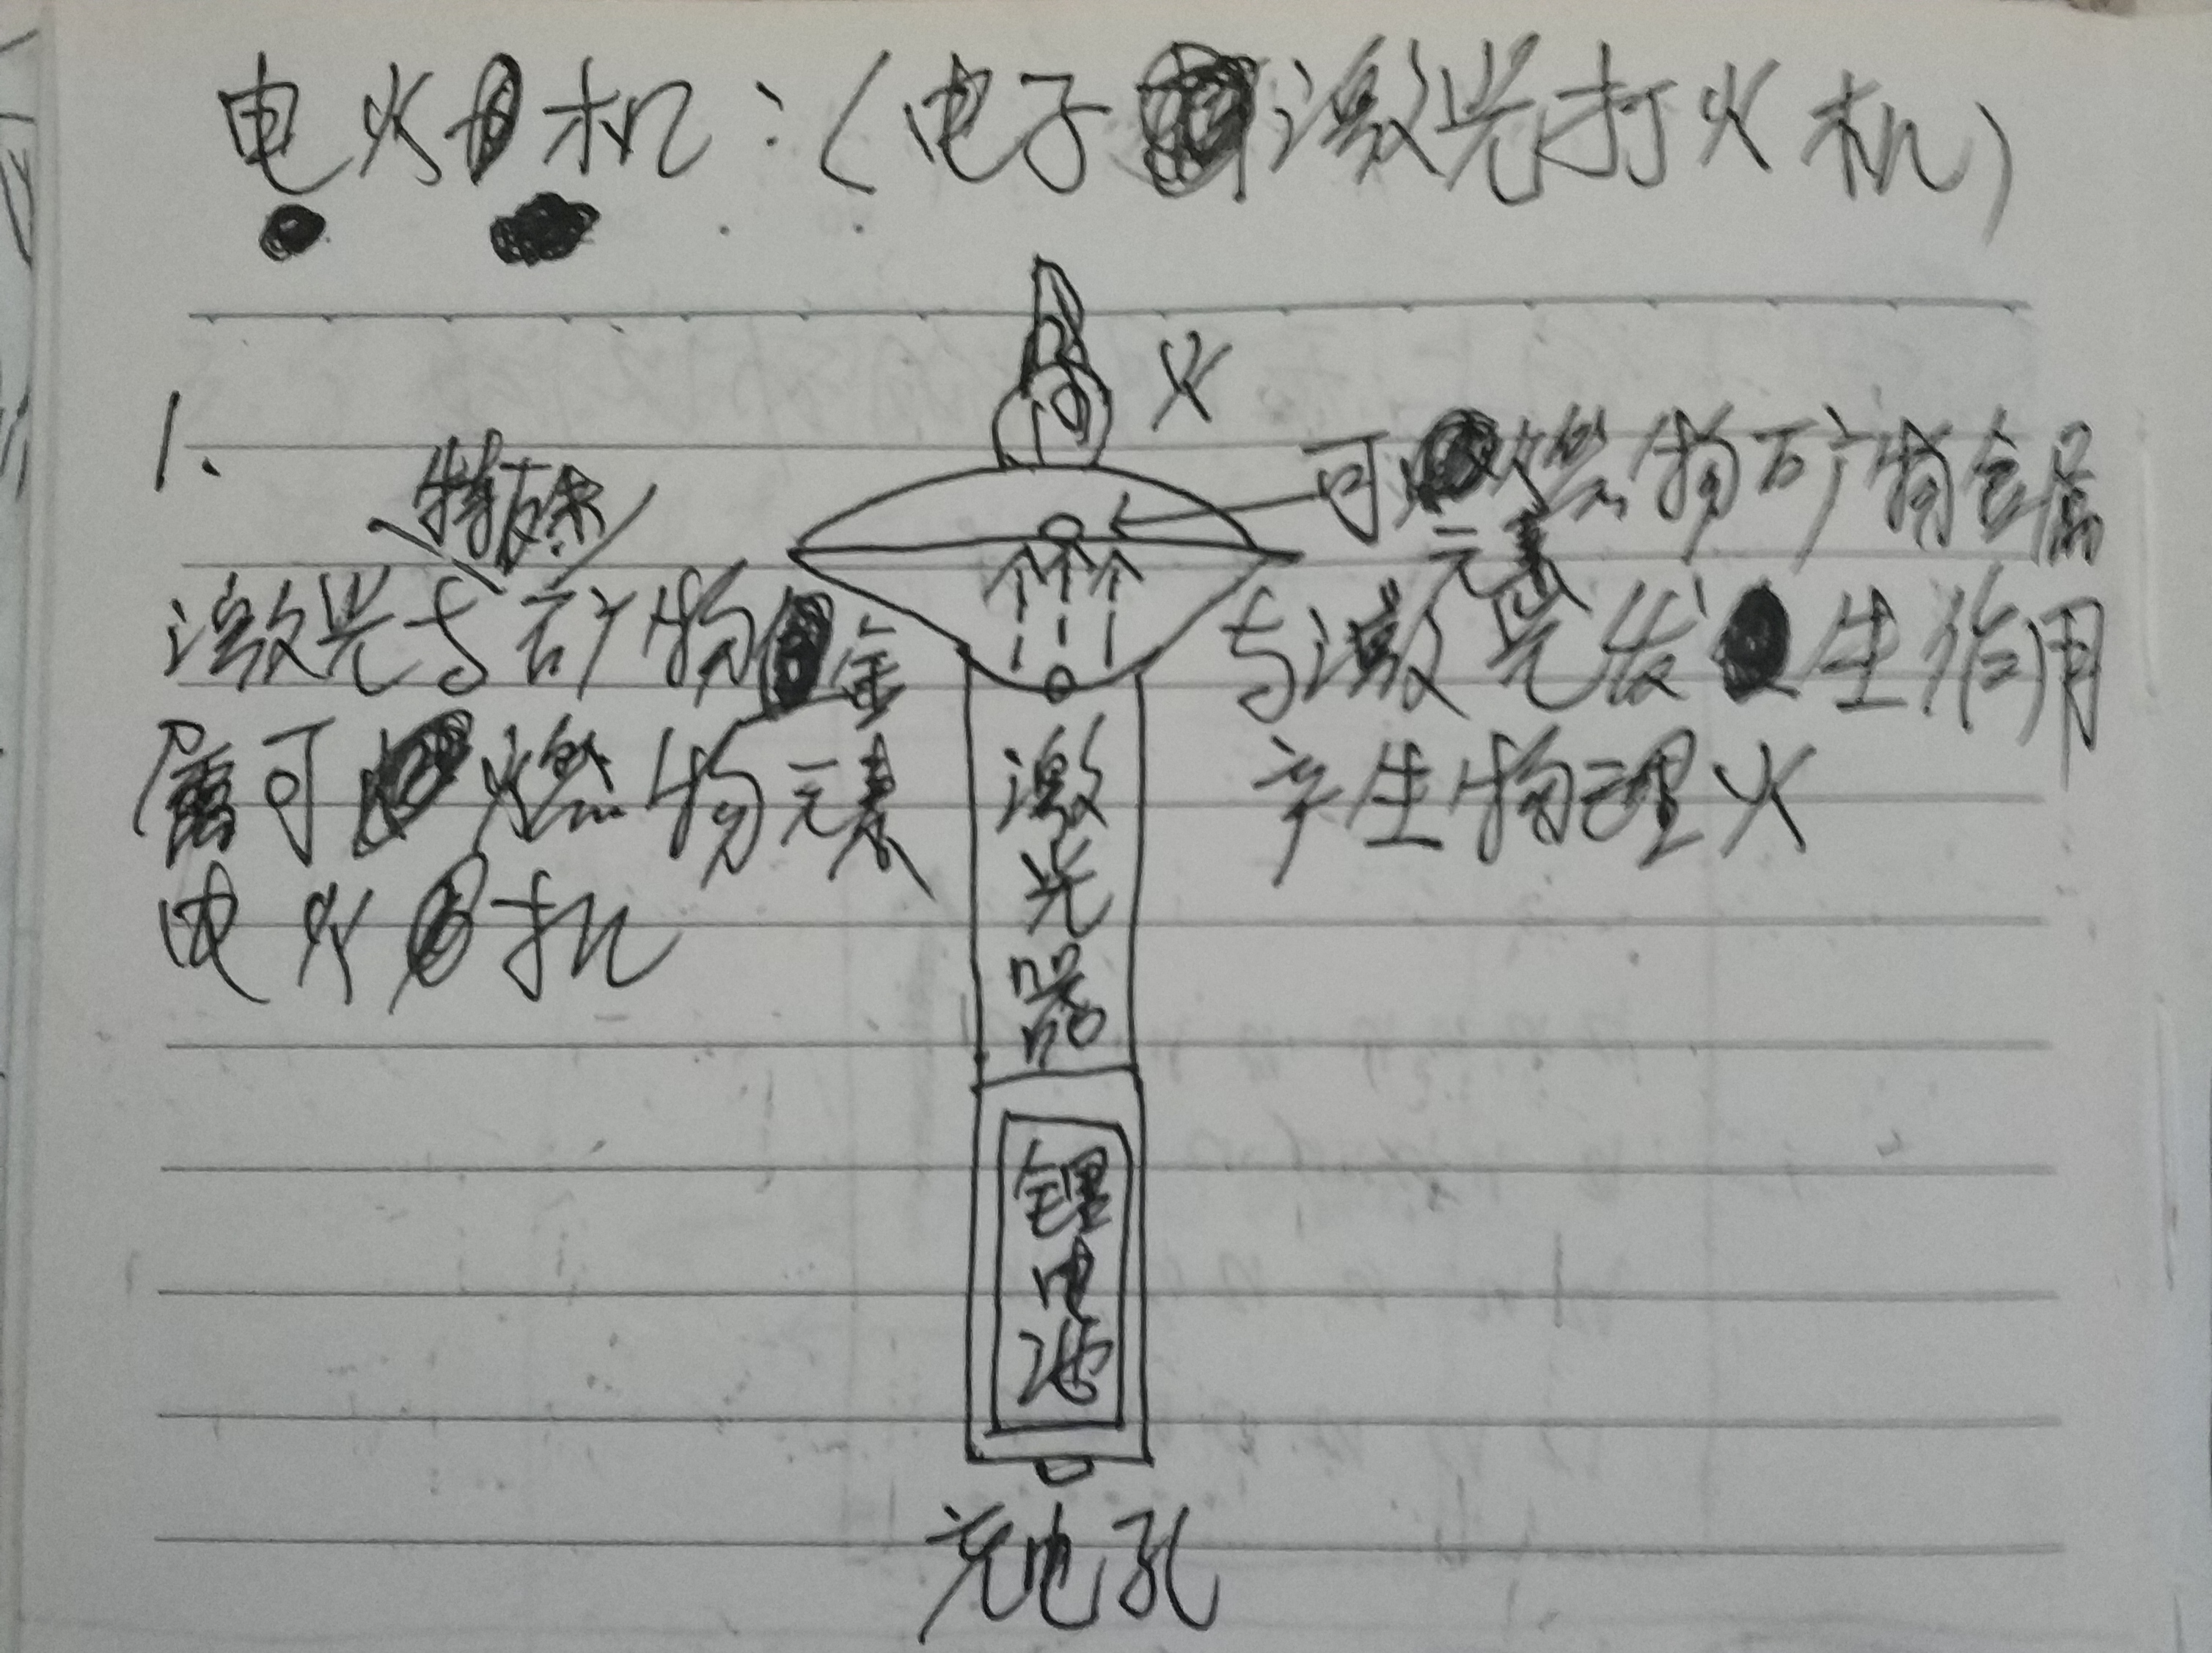 电火机：（电子激光打火机）
火
1.
特殊
激光与矿物金
属可燃物元素
电火机
可燃物矿物金属
元素
与激光发生作用
产生物理火
激
光
器
锂
电
池
充电孔